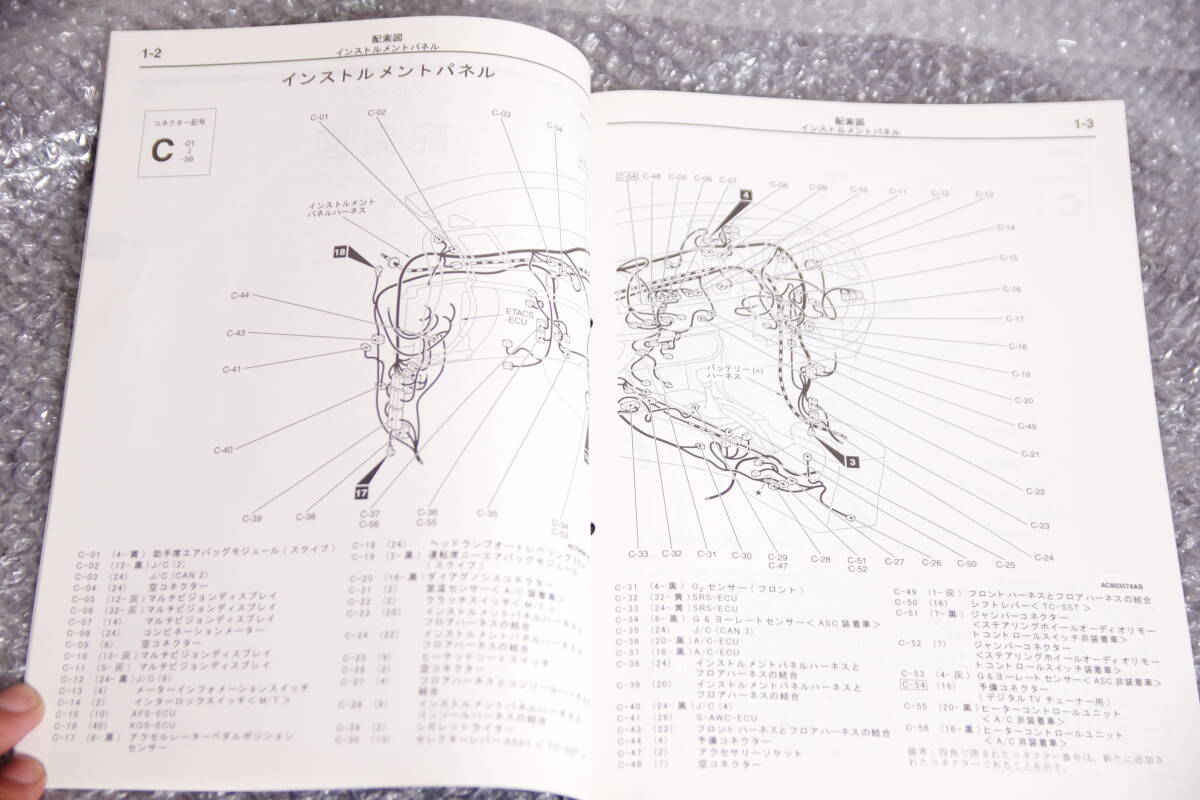 1-2
配索図
インストルメントパネル
インストルメントパネル
コネクター記号
C -01
~
-56
C-01
C-02
C-03
C-04
インストルメント
パネルハーネス
18
C-44
ETACS
-ECU
C-43
C-41
C-40
17
C-39
C-38
C-37
C-56
C-36
C-55
C-35
C-34
C-53
C-01 (4-黄) 助手席エアバッグモジュール(スクイブ)
C-02 (12-黒) J/C(2)
C-03 (24) J/C(CAN 2)
C-04 (24) 空コネクター
C-05 (12-灰) マルチビジョンディスプレイ
C-06 (32-灰) マルチビジョンディスプレイ
C-07 (14) マルチビジョンディスプレイ
C-08 (24) コンビネーションメーター
C-09 (6) 空コネクター
C-10 (12-灰) マルチビジョンディスプレイ
C-11 (5-灰) マルチビジョンディスプレイ
C-12 (24-黒) J/C(6)
C-13 (4) メーターインフォメーションスイッチ
C-14 (2) インターロックスイッチ<M/T>
C-15 (10) AFS-ECU
C-16 (40) KOS-ECU
C-17 (6-黒) アクセルレーターペダルポジション
センサー
C-18 (24) ヘッドランプオートレベリングECU
C-19 (2-黒) 運転席ニーエアバッグモジュール
(スクイブ)
C-20 (16-黒) ダイアグノシスコネクター
C-21 (2) 室温センサー<A/C装着車>
C-22 (2) クラッチスイッチ<M/T>
C-23 (20) インストルメントパネルハーネスと
フロアハーネスの結合
C-24 (22) インストルメントパネルハーネスと
フロアハーネスの結合
C-25 (9) ヒーテッドシートスイッチ
C-26 (2) 空コネクター
C-27 (4) フロアハーネスとコンソールハーネスの
結合
C-28 (6) インストルメントパネルハーネスと
コンソールハーネスの結合
C-29 (2) シガレットライター
C-30 (10) セレクターレバーASSY
1-3
配索図
インストルメントパネル
C-54
C-48
C-05
C-06
C-07
C-08
C-09
C-10
C-11
C-12
C-13
4
C-14
C-15
C-16
C-17
C-18
C-19
C-20
C-49
C-21
C-22
C-23
C-24
バッテリー(+)
ハーネス
3
★
C-33
C-32
C-31
C-30
C-29
C-47
C-28
C-51
C-52
C-27
C-26
C-50
C-25
AC803574AB
C-31 (4-黒) O₂センサー(フロント)
C-32 (32-黄) SRS-ECU
C-33 (24-黄) SRS-ECU
C-34 (6-黒) G&ヨーレートセンサー<ASC装着車>
C-35 (24) J/C(CAN 3)
C-36 (20-黒) A/C-ECU
C-37 (16-黒) A/C-ECU
C-38 (24) インストルメントパネルハーネスと
フロアハーネスの結合
C-39 (20) インストルメントパネルハーネスと
フロアハーネスの結合
C-40 (24-黒) J/C(4)
C-41 (26) S-AWC-ECU
C-43 (22) フロントハーネスとフロアハーネスの結合
C-44 (4) 予備コネクター
C-47 (2) アクセサリーソケット
C-48 (7) 空コネクター
C-49 (1-灰) フロントハーネスとフロアハーネスの結合
C-50 (16) シフトレバー<TC-SST>
C-51 (7-黒) ジャンパーコネクター
<ステアリングホイールオーディオリモー
トコントロールスイッチ非装着車>
C-52 (7) ジャンパーコネクター
<ステアリングホイールオーディオリモー
トコントロールスイッチ装着車>
C-53 (4-灰) G&ヨーレートセンサー<ASC非装着車>
C-54 (16) 予備コネクター
(デジタルTVチューナー用)
C-55 (20-黒) ヒーターコントロールユニット
<A/C非装着車>
C-56 (16-黒) ヒーターコントロールユニット
<A/C非装着車>
備考：四角で囲まれたコネクター番号は、新たに追加さ
れたコネクターであることを示す。